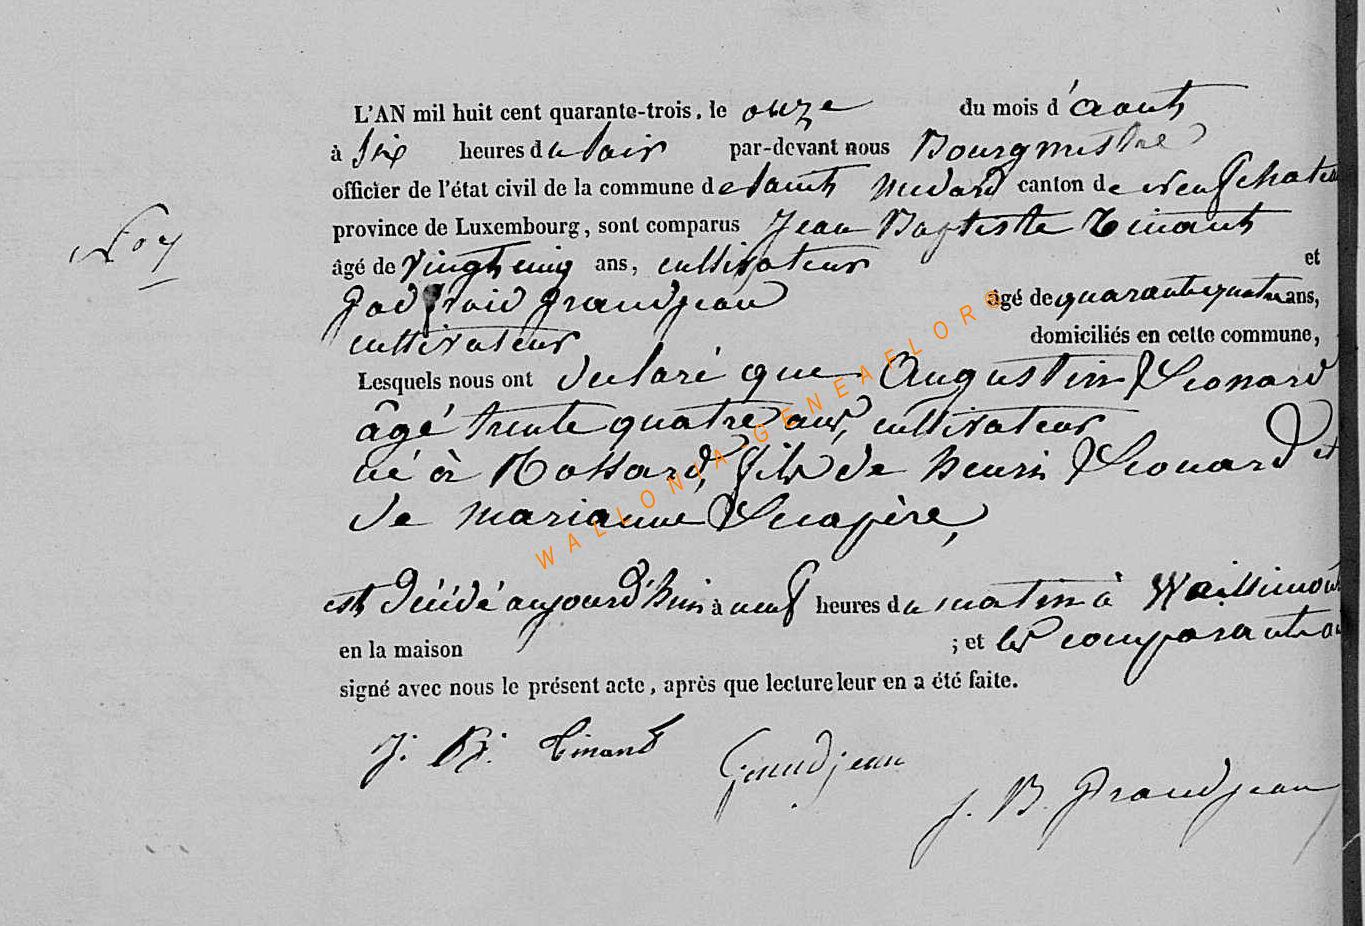 L'AN mil huit cent quarante-trois, le onze du mois d'aout
à six heures du soir par-devant nous Bourgmestre
officier de l'état civil de la commune de saint medard canton de neufchateau
province de Luxembourg, sont comparus Jean Baptiste Tinant
âgé de vingt cinq ans, cultivateur et
Godfroid Grandjean âgé de quarante quatre ans,
cultivateur domiciliés en cette commune,
Lesquels nous ont declaré que Augustin Leonard
âgé trente quatre ans, cultivateur
né à Rossard, fils de henri Leonard et
de marianne
est décédé aujourd'hui à neuf heures du matin à Waillimont
en la maison ; et les comparants ont
signé avec nous le présent acte, après que lecture leur en a été faite.
J. B. Tinant Grandjean
J. B. Grandjean
WALLONIA-GENEAFLOR©